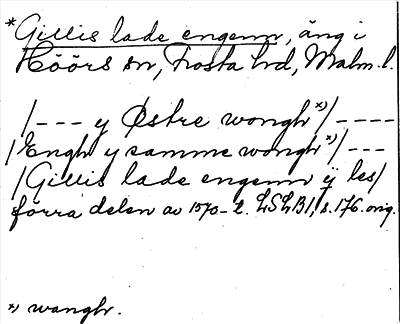 * Gillis lade engenn, äng i
Höörs sn, Frosta hd, Malm. l.
/--- y Østre wongh *) /----
/Engh y samme wongh *) /---
/Gillis lade engenn ÿ les/
förra delen av 1570-t. LSLB1, s. 176. orig.
*) wangh.